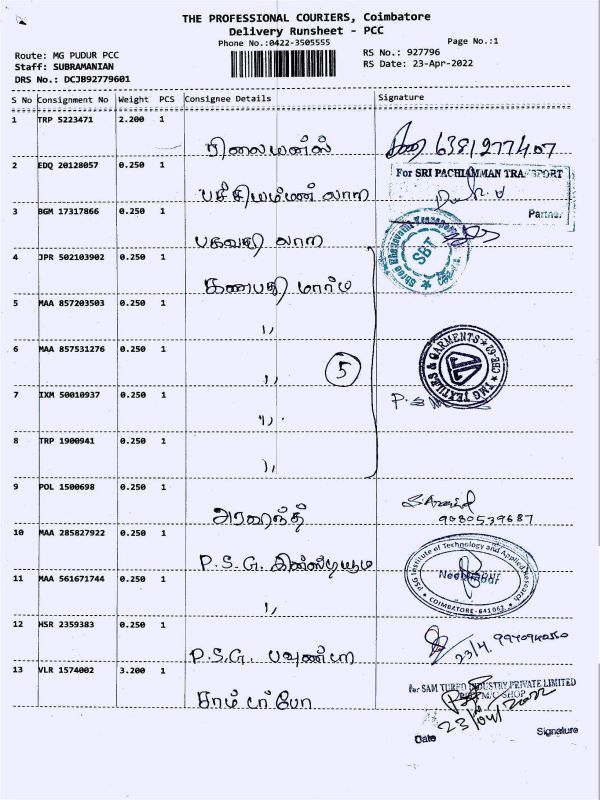 THE PROFESSIONAL COURIERS, Coimbatore
Delivery Runsheet - PCC
Phone No.:0422-3505555
Page No.:1
Route: MG PUDUR PCC
RS No.: 927796
Staff: SUBRAMANIAN
RS Date: 23-Apr-2022
DRS No.: DCJB92779601
S No Consignment No Weight PCS Consignee Details Signature
1 TRP 5223471 2.200 1
6381277407
2 EDQ 20128057 0.250 1
For SRI PACHIAMMAN TRANSPORT
Partner
3 BGM 17317866 0.250 1
பகவதி லாரி
SBT
4 JPR 502103902 0.250 1
கணபதி மார்ம
5 MAA 857203503 0.250 1
,,
6 MAA 857531276 0.250 1
,,
5
TMG TEXTILES & GARMENTS CBE-62
7 IXM 50010937 0.250 1
,,
8 TRP 1900941 0.250 1
,,
9 POL 1500698 0.250 1
9080539687
10 MAA 285827922 0.250 1
P.S.G.
PSG Institute of Technology and Applied Research
Neelambur
COIMBATORE-641062
11 MAA 561671744 0.250 1
,,
12 HSR 2359383 0.250 1
P.S.G.
23/4
13 VLR 1574002 3.200 1
for SAM TURBO INDUSTRY PRIVATE LIMITED
M/C SHOP
23/04/2022
Date
Signature